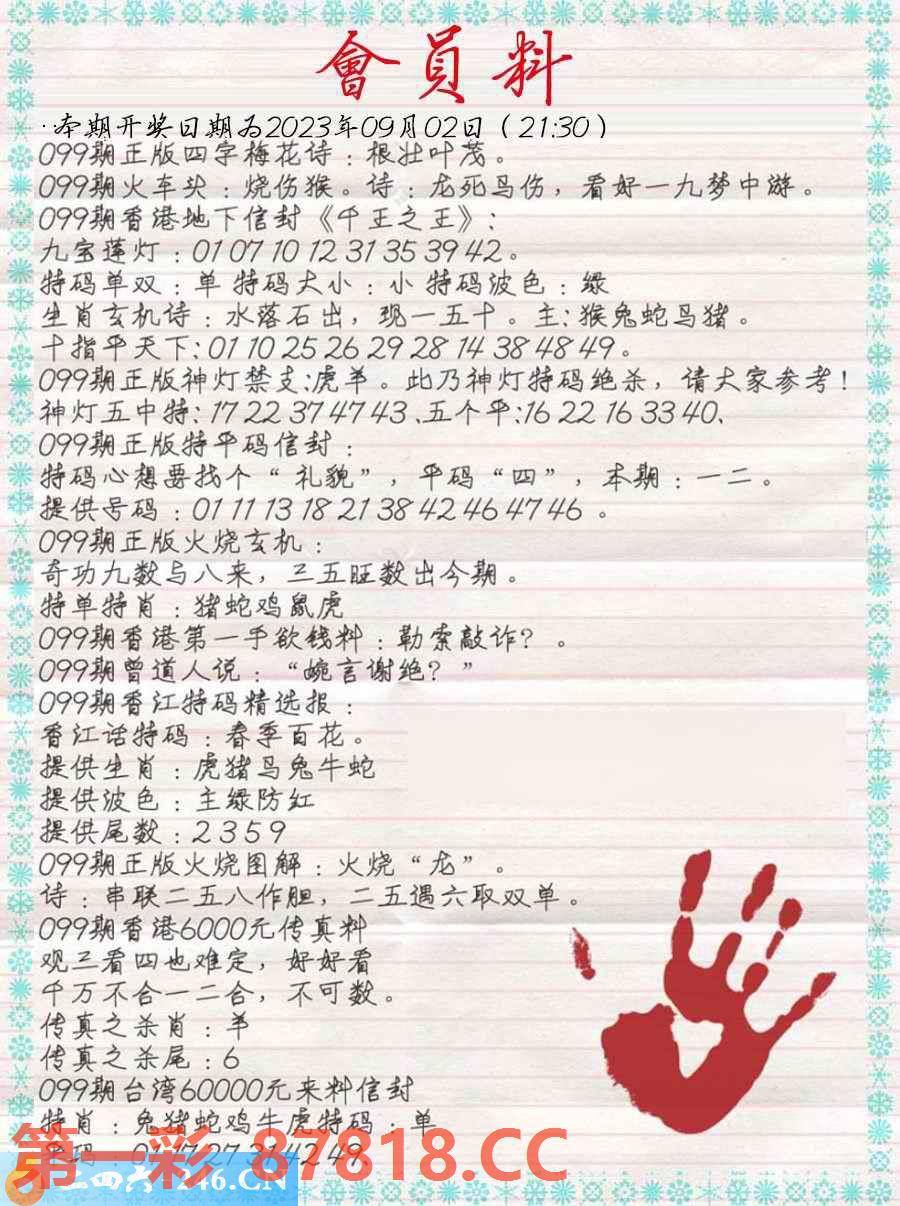 會員料
·本期开奖日期为2023年09月02日（21:30）
099期正版四字梅花诗：根壮叶茂。
099期火车头：烧伤猴。诗：龙死鸟伤，看好一九梦中游。
099期香港地下信封《千王之王》：
九宝莲灯：01 07 10 12 31 35 39 42。
特码单双：单 特码大小：小 特码波色：绿
生肖玄机诗：水落石出，现一五十。主：猴兔蛇马猪。
十指平天下：01 10 25 26 29 28 14 38 48 49。
099期正版神灯禁支:虎羊。此乃神灯特码绝杀，请大家参考！
神灯五中特：17 22 37 47 43、五个平：16 22 16 33 40、
099期正版特平码信封：
特码心想要找个“礼貌”，平码“四”，本期：一二。
提供号码：01 11 13 18 21 38 42 46 47 46 。
099期正版火烧玄机：
奇功九数与八来，三五旺数出今期。
特单特肖：猪蛇鸡鼠虎
099期香港第一手欲钱料：勒索敲诈？。
099期曾道人说：“婉言谢绝？”
099期香江特码精选报：
香江话特码：春季百花。
提供生肖：虎猪马兔牛蛇
提供波色：主绿防红
提供尾数：2 3 5 9
099期正版火烧图解：火烧“龙”。
诗：串联二五八作胆，二五遇六取双单。
099期香港6000元传真料
观三看四也难定，好好看
千万不合一二合，不可数。
传真之杀肖：羊
传真之杀尾：6
099期台湾60000元来料信封
特肖：兔猪蛇鸡牛虎特码：单
27 31 42 49、
第一彩 87818.CC
二四六 246.CN